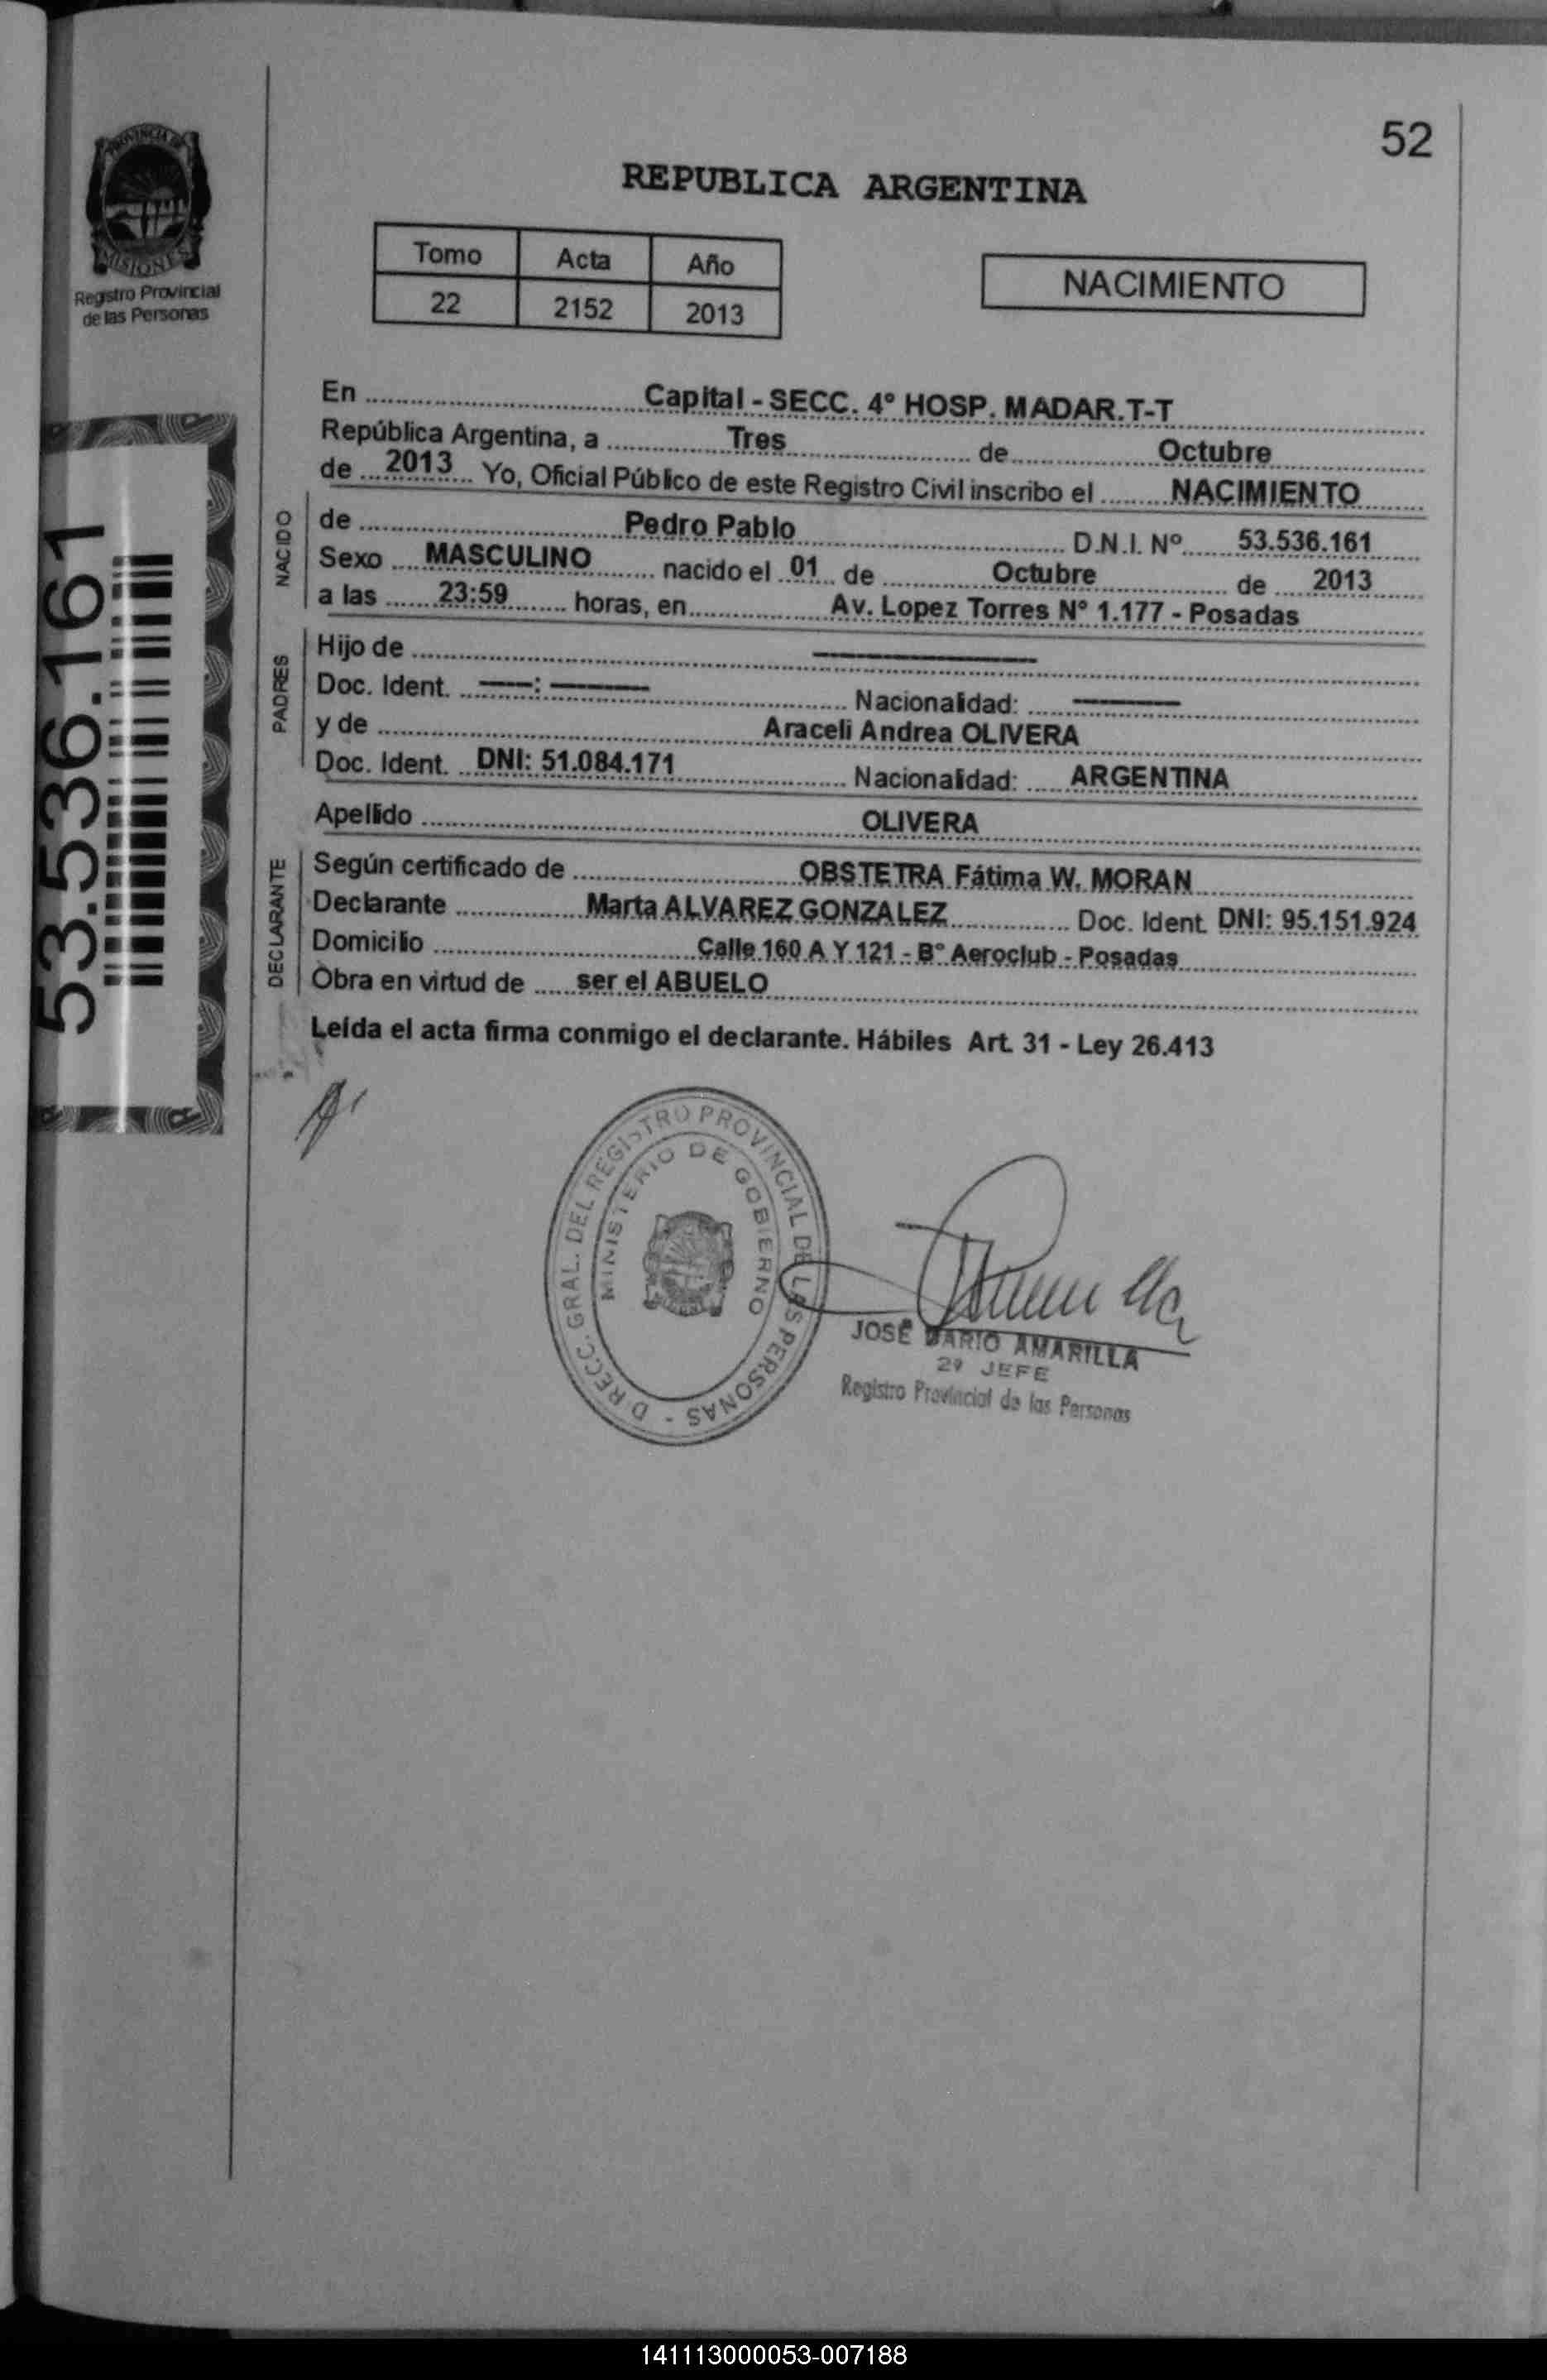 52
PROVINCIA DE
MISIONES
Registro Provincial
de las Personas
REPUBLICA ARGENTINA
Tomo Acta Año
22 2152 2013
NACIMIENTO
53.536.161
En Capital - SECC. 4° HOSP. MADAR.T-T
República Argentina, a Tres de Octubre
de 2013 Yo, Oficial Público de este Registro Civil inscribo el NACIMIENTO
NACIDO
de Pedro Pablo D.N.I. Nº 53.536.161
Sexo MASCULINO nacido el 01 de Octubre de 2013
a las 23:59 horas, en Av. Lopez Torres N° 1.177 - Posadas
PADRES
Hijo de
Doc. Ident. : Nacionalidad:
y de Araceli Andrea OLIVERA
Doc. Ident. DNI: 51.084.171 Nacionalidad: ARGENTINA
Apellido OLIVERA
DECLARANTE
Según certificado de OBSTETRA Fátima W. MORAN
Declarante Marta ALVAREZ GONZALEZ Doc. Ident. DNI: 95.151.924
Domicilio Calle 160 A Y 121 - B° Aeroclub - Posadas
Obra en virtud de ser el ABUELO
Leída el acta firma conmigo el declarante. Hábiles Art. 31 - Ley 26.413
DIRECC. GRAL. DEL REGISTRO PROVINCIAL DE LAS PERSONAS -
MINISTERIO DE GOBIERNO
JOSÉ DARIO AMARILLA
2º JEFE
Registro Provincial de las Personas
141113000053-007188